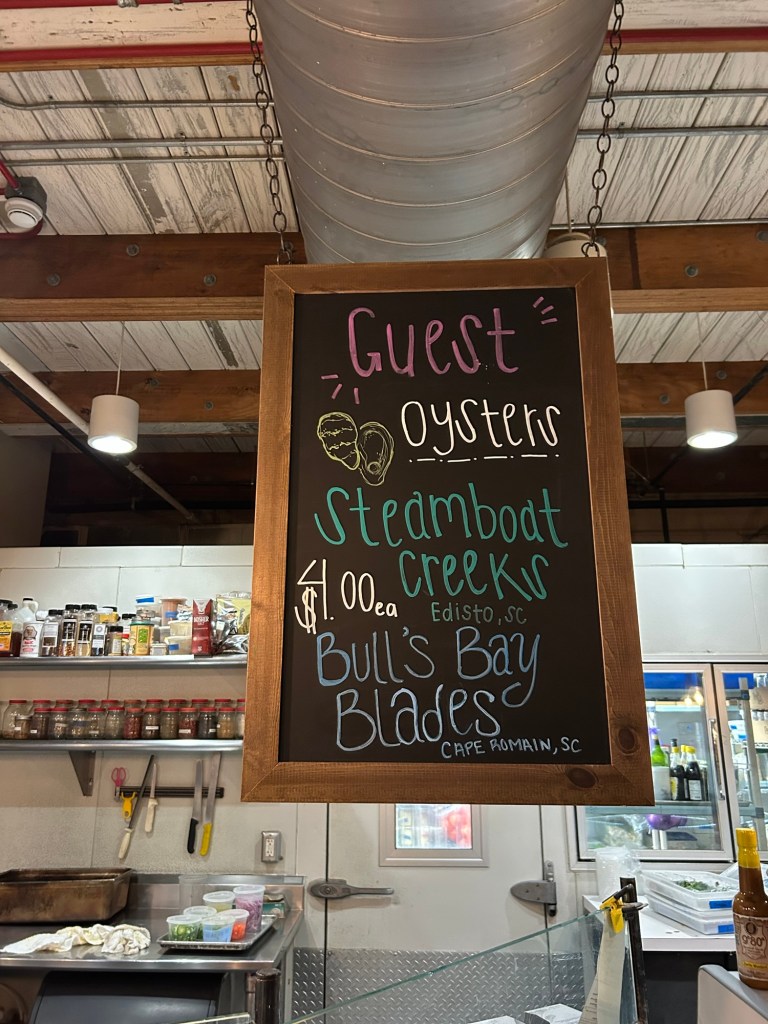 Guest
oysters
Steamboat
Creeks
$4.00ea
Edisto, SC
Bull's Bay
Blades
CAPE ROMAIN, SC
KOSHER